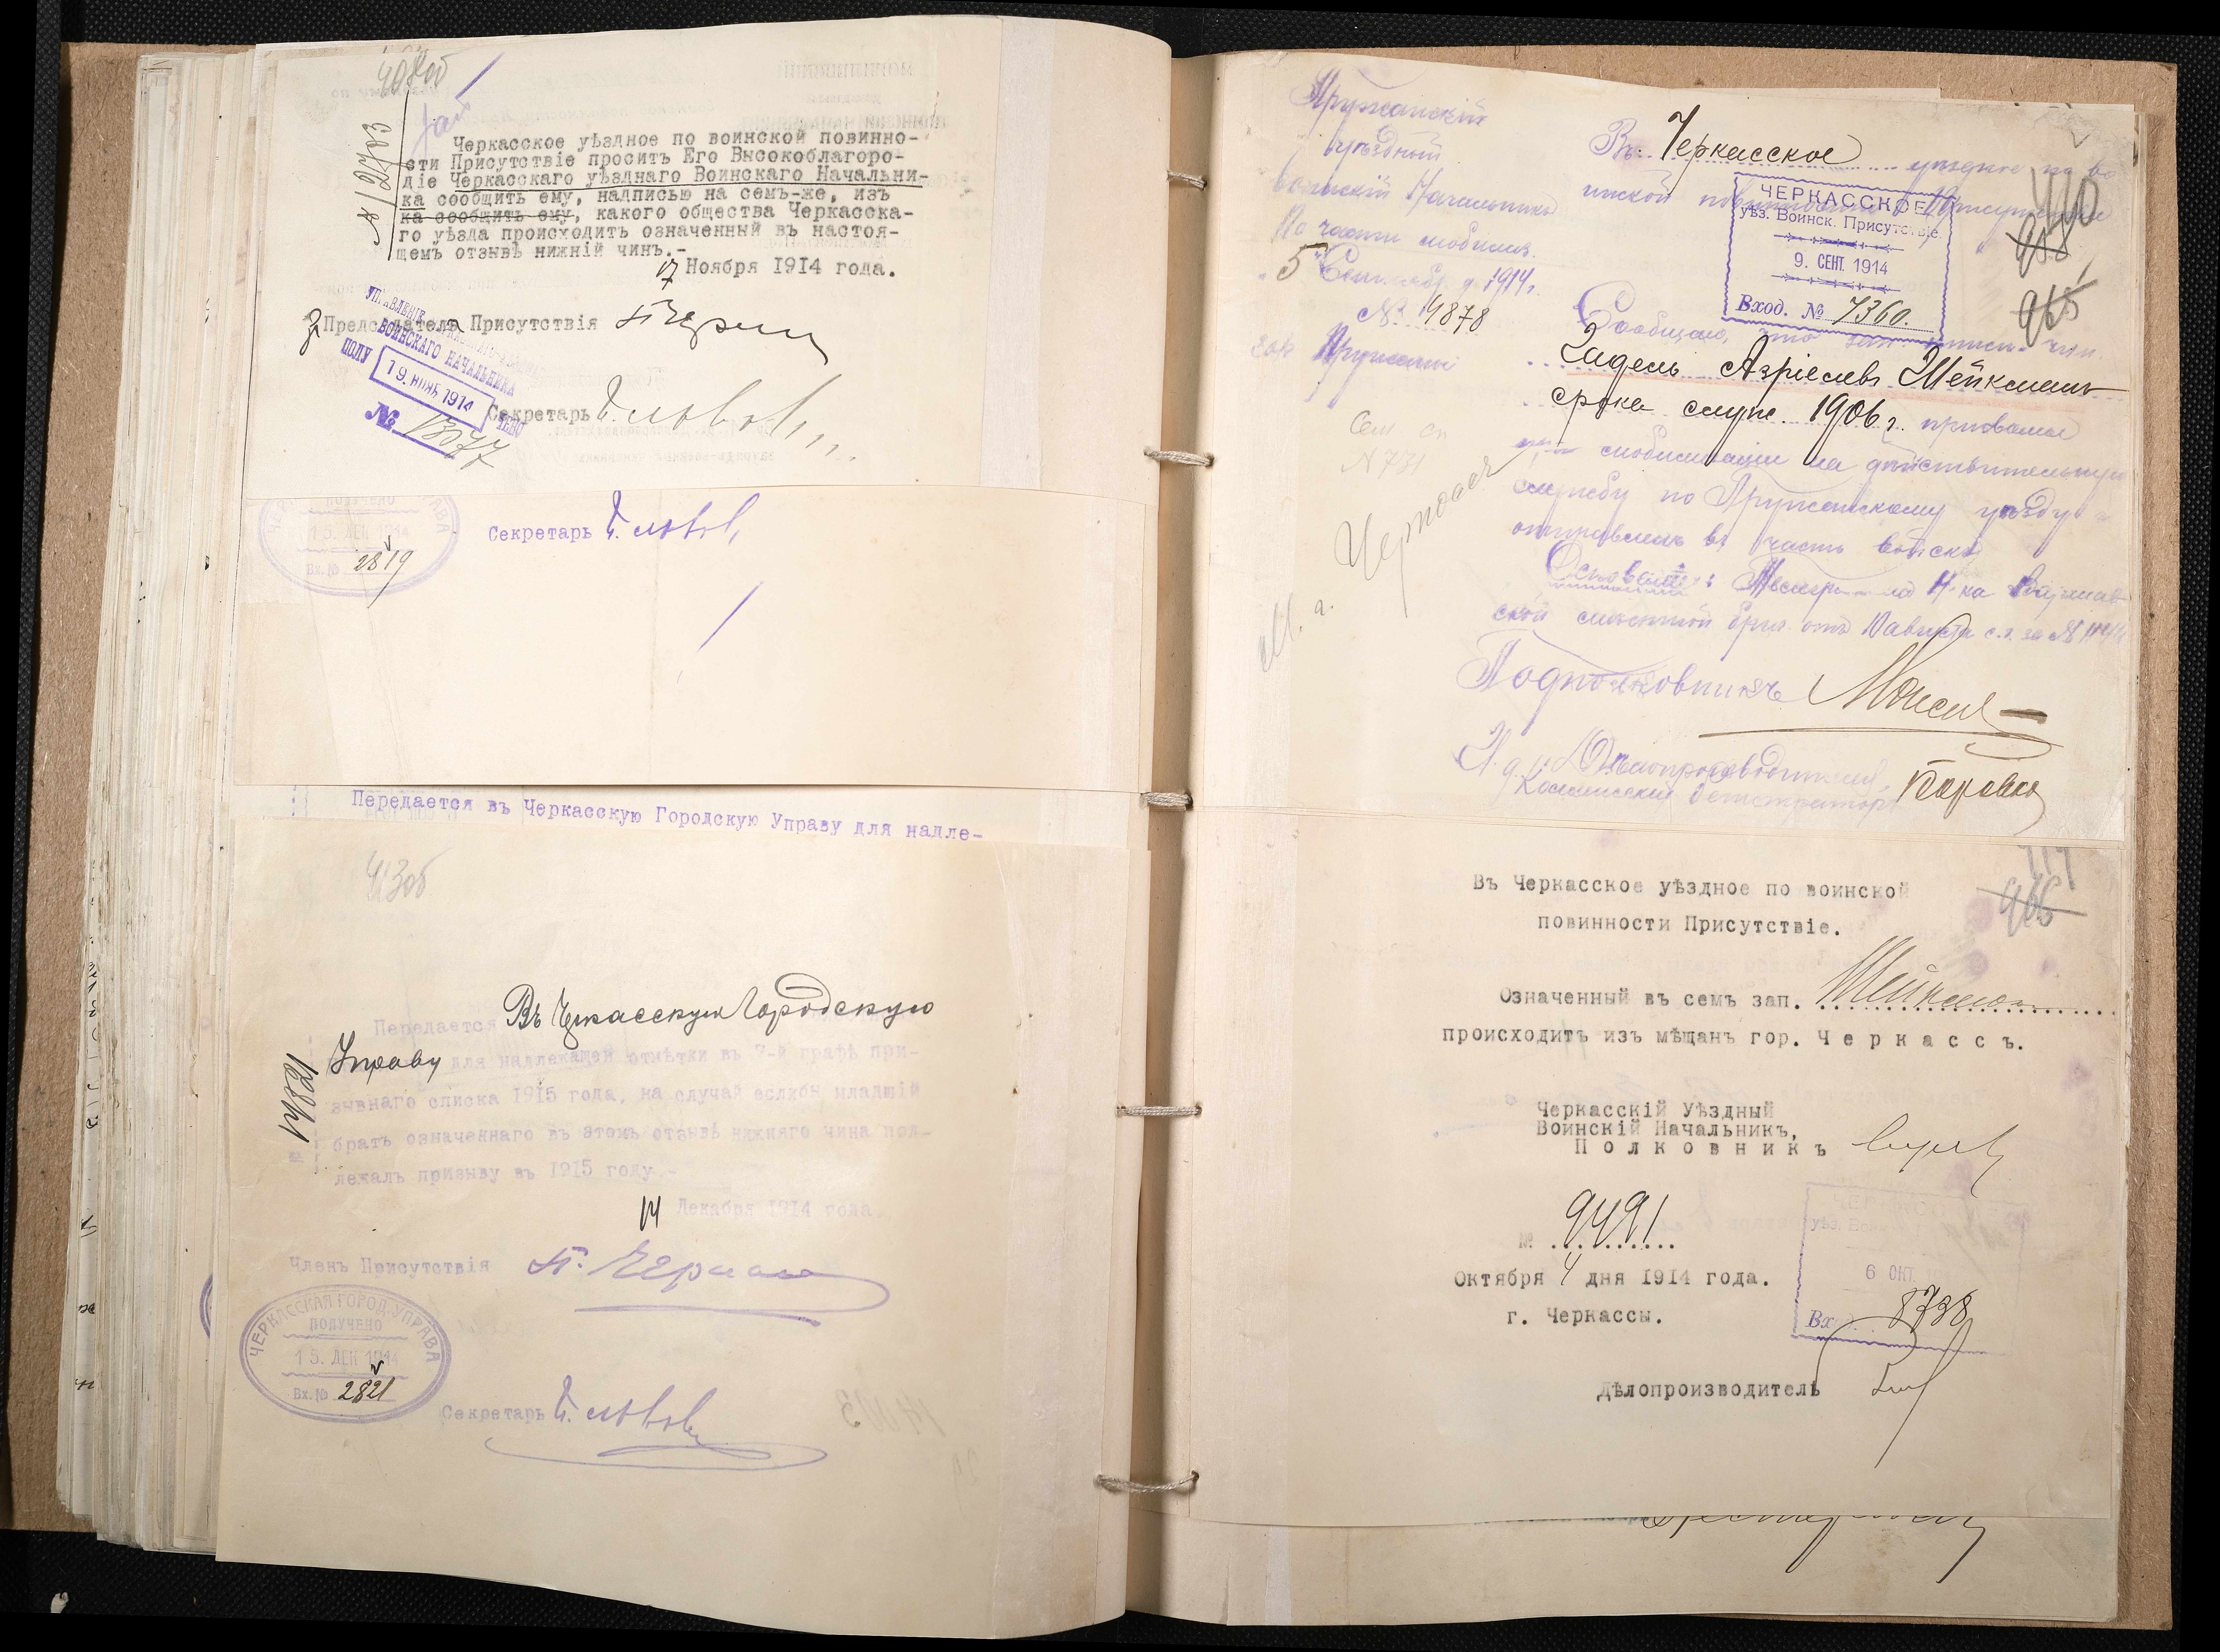 408об
№ 12703
Черкасское уѣздное по воинской повинно-
сти Присутствіе проситъ Его Высокоблагоро-
діе Черкасскаго уѣзднаго Воинскаго Начальни-
ка сообщить ему, надписью на семъ-же, изъ
ка сообщить ему, какого общества Черкасска-
го уѣзда происходитъ означенный въ настоя-
щемъ отзывѣ нижній чинъ.-
17 Ноября 1914 года.
Предсѣдатель Присутствія
УПРАВЛЕНІЕ
ВОИНСКАГО НАЧАЛЬНИКА
ПОЛУЧЕНО
19. НОЯБ 1914
№ 13077
Секретарь
ПОЛУЧЕНО
15. ДЕК 1914
Вх. № 2819
Секретарь
Передается въ Черкасскую Городскую Управу для надле-
413об
12821
Передается Въ Черкасскую Городскую
Управу для надлежащей отмѣтки въ 7-й графѣ при-
зывнаго списка 1915 года, на случай еслибы младшій
братъ означеннаго въ этомъ отзывѣ нижняго чина под-
лежалъ призыву въ 1915 году.-
14 Декабря 1914 года
Членъ Присутствія
ЧЕРКАССКАЯ ГОРОД. УПРАВА
ПОЛУЧЕНО
15. ДЕК 1914
Вх. № 2821
Секретарь
Пружанскій
Уѣздный
воинскій Начальникъ
По части мобилиз.
„5" Сентября 1914 г.
№ 4878
гор Пружаны
Въ Черкасское уѣздное по во
инской повинности Присутствіе
ЧЕРКАССКОЕ
уѣз. Воинск. Присутствіе.
9. СЕНТ. 1914
Вход. № 7360.
410
965
Сообщаю, что зап. нижн. чин.
Айдель Азріелевъ Шейкманъ
срока служ. 1906 г. призванъ
при мобилизаціи на дѣйствительную
службу по Пружанскому уѣзду и
отправленъ въ часть войскъ
Сем сп
N 731
Основаніе:
Подполковникъ
И. д. Дѣлопроизводителя,
411
966
Въ Черкасское уѣздное по воинской
повинности Присутствіе.
Означенный въ семъ зап. Шейкманъ
происходитъ изъ мѣщанъ гор. Черкассъ.
Черкасскій Уѣздный
Воинскій Начальникъ,
Полковникъ
№ 9491
Октября 4 дня 1914 года.
г. Черкассы.
6 ОКТ.
Вх 8738
Дѣлопроизводитель